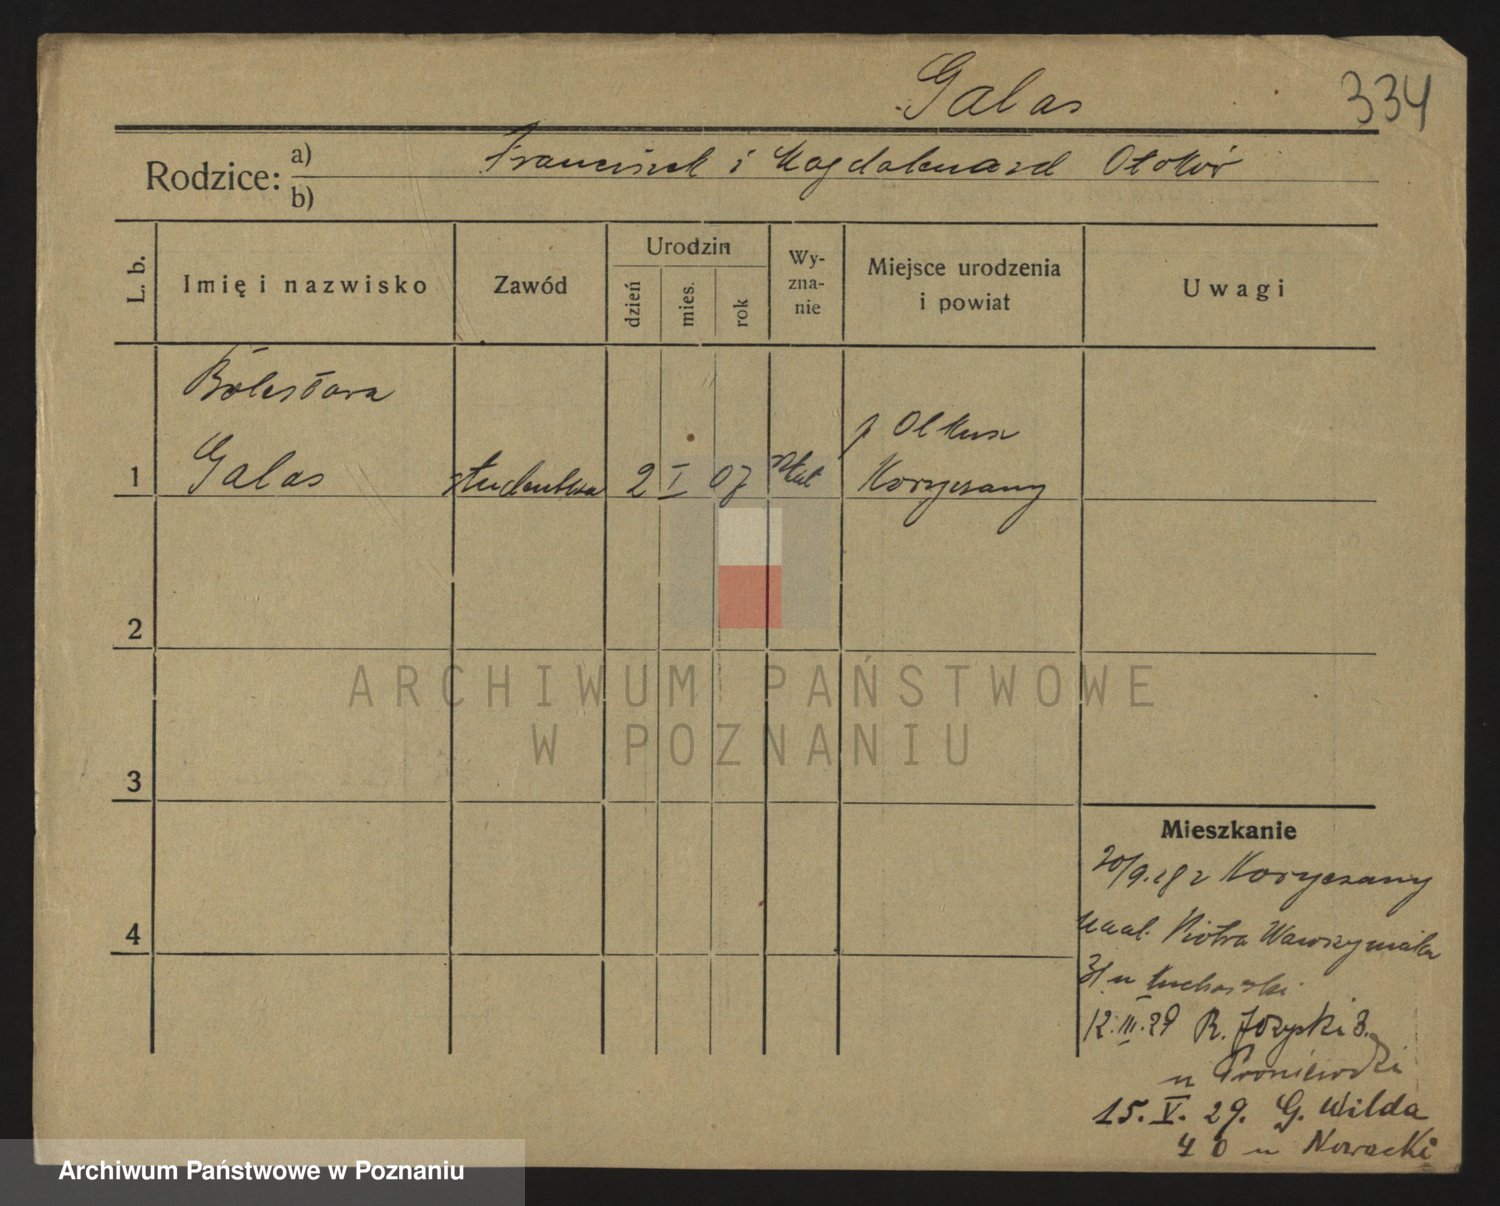 Galas
334
Rodzice: a) Franciszek i Magdalena zd Otokór
b)
L. b.
Imię i nazwisko
Zawód
Urodzin
dzień
mies.
rok
Wy-
zna-
nie
Miejsce urodzenia
i powiat
Uwagi
Bolesława
p Olkusz
1 Galas studentka 2 I 07 kat Koryczany
2
3
4
ARCHIWUM PAŃSTWOWE
W POZNANIU
Mieszkanie
20/9.28 z Koryczany
Piotra Wawrzyniaka
31 u Kucharski
12.III.29 R.
u Broniewski
15. V. 29. G. Wilda
40 u Nowacki
Archiwum Państwowe w Poznaniu